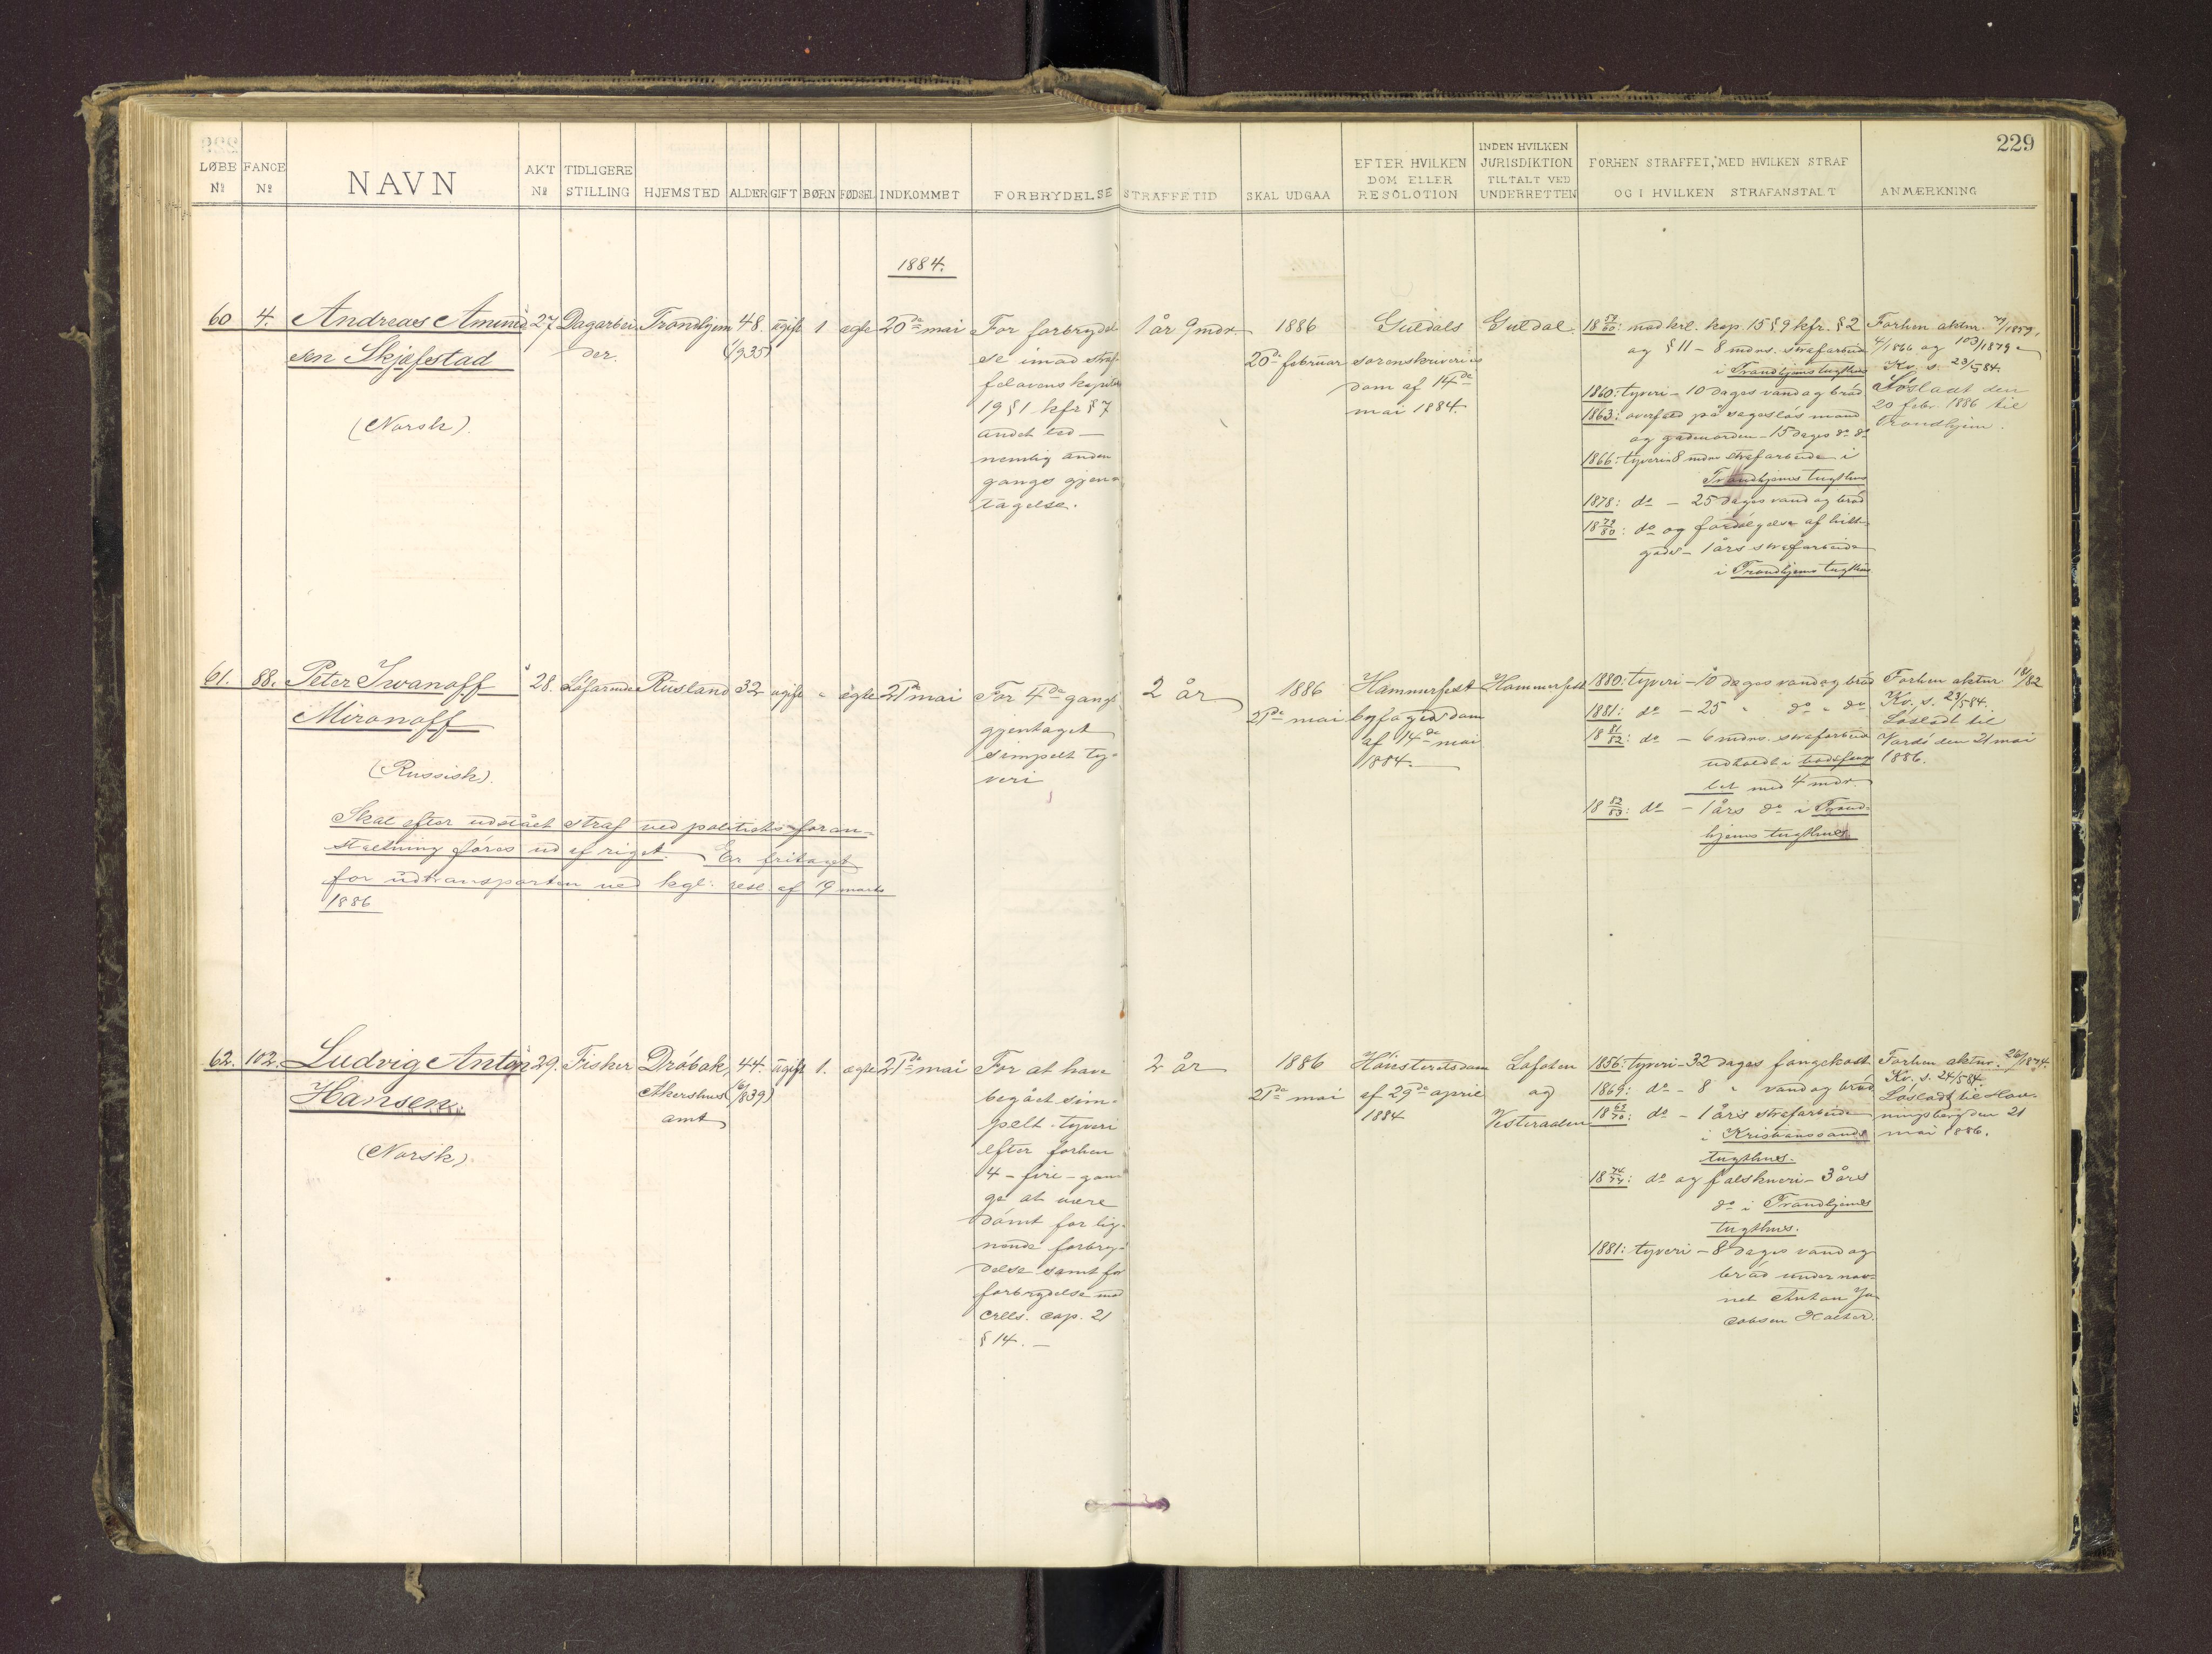 229
LØBE Nº
FANGE Nº
NAVN
AKT Nº
TIDLIGERE STILLING
HJEMSTED
ALDER
GIFT
BØRN
FØDSEL
INDKOMMET
FORBRYDELSE
STRAFFETID
SKAL UDGAA
EFTER HVILKEN DOM ELLER RESOLOTION
INDEN HVILKEN JURISDIKTION TILTALT VED UNDERRETTEN
FORHEN STRAFFET, MED HVILKEN STRAF OG I HVILKEN STRAFANSTALT
ANMÆRKNING
1884.
60
4.
Andreas Amund
sen Skjefestad
(Norsk).
27
Dagarbei
der.
Trondhjem
48.
(1/935)
ugift
1
ægte
20de mai
For forbrydel
se imod straf
felovens kapitel
19 § 1 kfr § 7
andet led –
nemlig anden
gangs gjen
tagelse.
1 år 9 mdr.
1886
20de februar
Guldals
sorenskriveries
dom af 14de
mai 1884.
Guldal.
18 59/60: mod krl. kap. 15 § 9 kfr. § 2
og § 11 – 8 mdrs. strafarbeid
i Trondhjems tugthus
1860: tyveri – 10 dages vand og bröd
1863: overfald på sagesløs mand
og gadeuorden – 15 dages do do
1866: tyveri 8 mdrs strafarbeide i
Trondhjems tugthus
1878: do – 25 dages vand og bröd
18 79/80: do og fordølgelse af hitte
gods – 1 års strafarbeide
i Trondhjems tugthus
Forhen aktnr. 79/1859,
4/1866 og 103/1879
Kv. s. 23/584.
Løsladt den
20 febr. 1886 til
Trondhjem.
61.
88.
Peter Iwanoff
Mironoff
(Russisk).
Skal efter udstået straf ved politiets foran-
staltning føres ud af riget. Er fritaget
for udtransporten ved kgl. resl. af 19 marts
1886
28.
Løsarbeide
Rusland
32
ugift
"
ægte
21de mai
For 4de gang
gjentaget
simpelt ty-
veri
2 år
1886
21de mai
Hammerfest
byfogeds dom
af 14de mai
1884.
Hammerfest
1880: tyveri – 10 dages vand og bröd
1881: do – 25 " do " do
18 81/82: do – 6 mdrs. strafarbeid
udholdt i bodsfæng
let med 4 mdr.
18 82/83: do – 1 års do i Trond-
hjems tugthus
Forhen aktnr. 18/82
Kv. s. 23/584.
Løsladt til
Vardö den 21 mai
1886.
62.
102.
Ludvig Anton
Hansen.
(Norsk)
29.
Fisker
Dröbak,
Akershus
amt
44.
(6/839)
ugift
1.
ægte
21de mai
For at have
begået sim-
pelt tyveri
efter forhen
4 – fire – gan
ge at være
dömt for lig-
nende forbry-
delse samt for
forbrydelse mod
crlls. cap. 21
§ 14. –
2 år
1886
21de mai
Höiesteretsdom
af 29de april
1884
Lofoten
og
Vesteraalen
1856: tyveri – 32 dages fangekost
1869: do – 8 " vand og bröd
18 69/70: do – 1 års strafarbeide
i Kristianssands
tugthus.
18 74/77: do og falskneri – 3 års
do i Trondhjems
tugthus.
1881: tyveri – 8 dages vand og
bröd under nav-
net Anton Ja
cobsen Holter.
Forhen aktnr. 26/1874.
Kv. s. 24/584.
Løsladt til Hav-
ningsberg den 21
mai 1886.